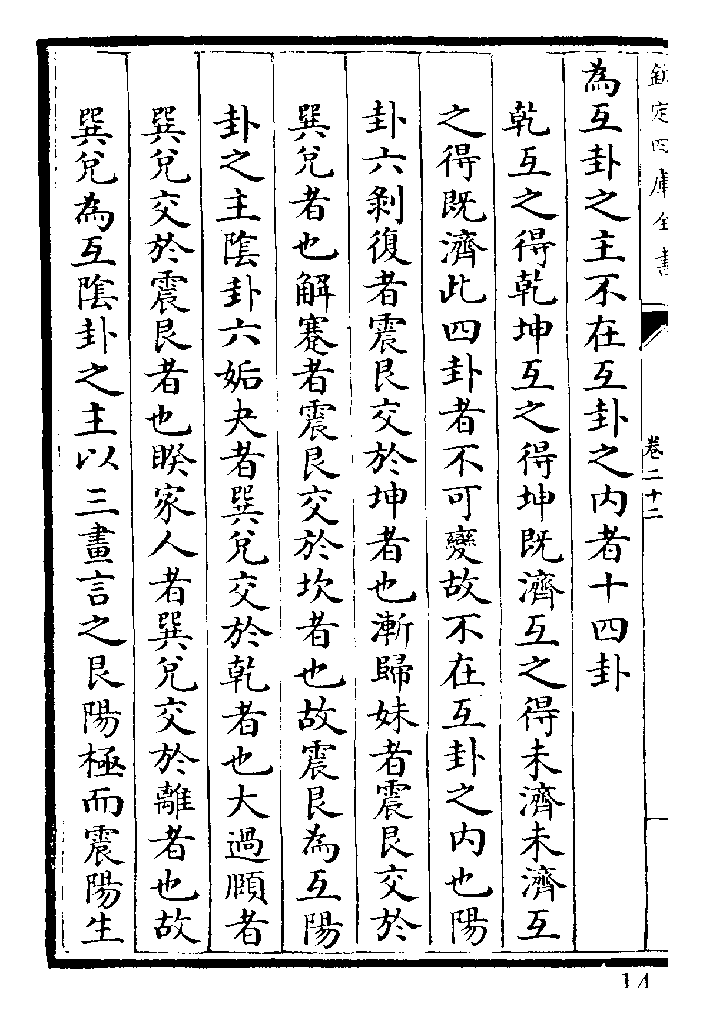 欽定四庫全書
卷二十二
為互卦之主不在互卦之内者十四卦
乾互之得乾坤互之得坤既濟互之得未濟未濟互
之得既濟此四卦者不可變故不在互卦之内也陽
卦六剝復者震艮交於坤者也漸歸妹者震艮交於
巽兌者也解蹇者震艮交於坎者也故震艮為互陽
卦之主陰卦六姤夬者巽兌交於乾者也大過頤者
巽兌交於震艮者也睽家人者巽兌交於離者也故
巽兌為互陰卦之主以三畫言之艮陽極而震陽生
14